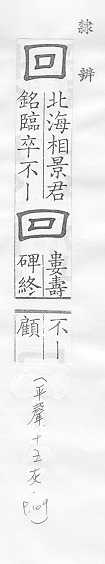 隸辨
回
北海相景君
銘臨卒不｜
回
婁壽
碑終
不｜
顧
(平聲十五灰.
P.109)